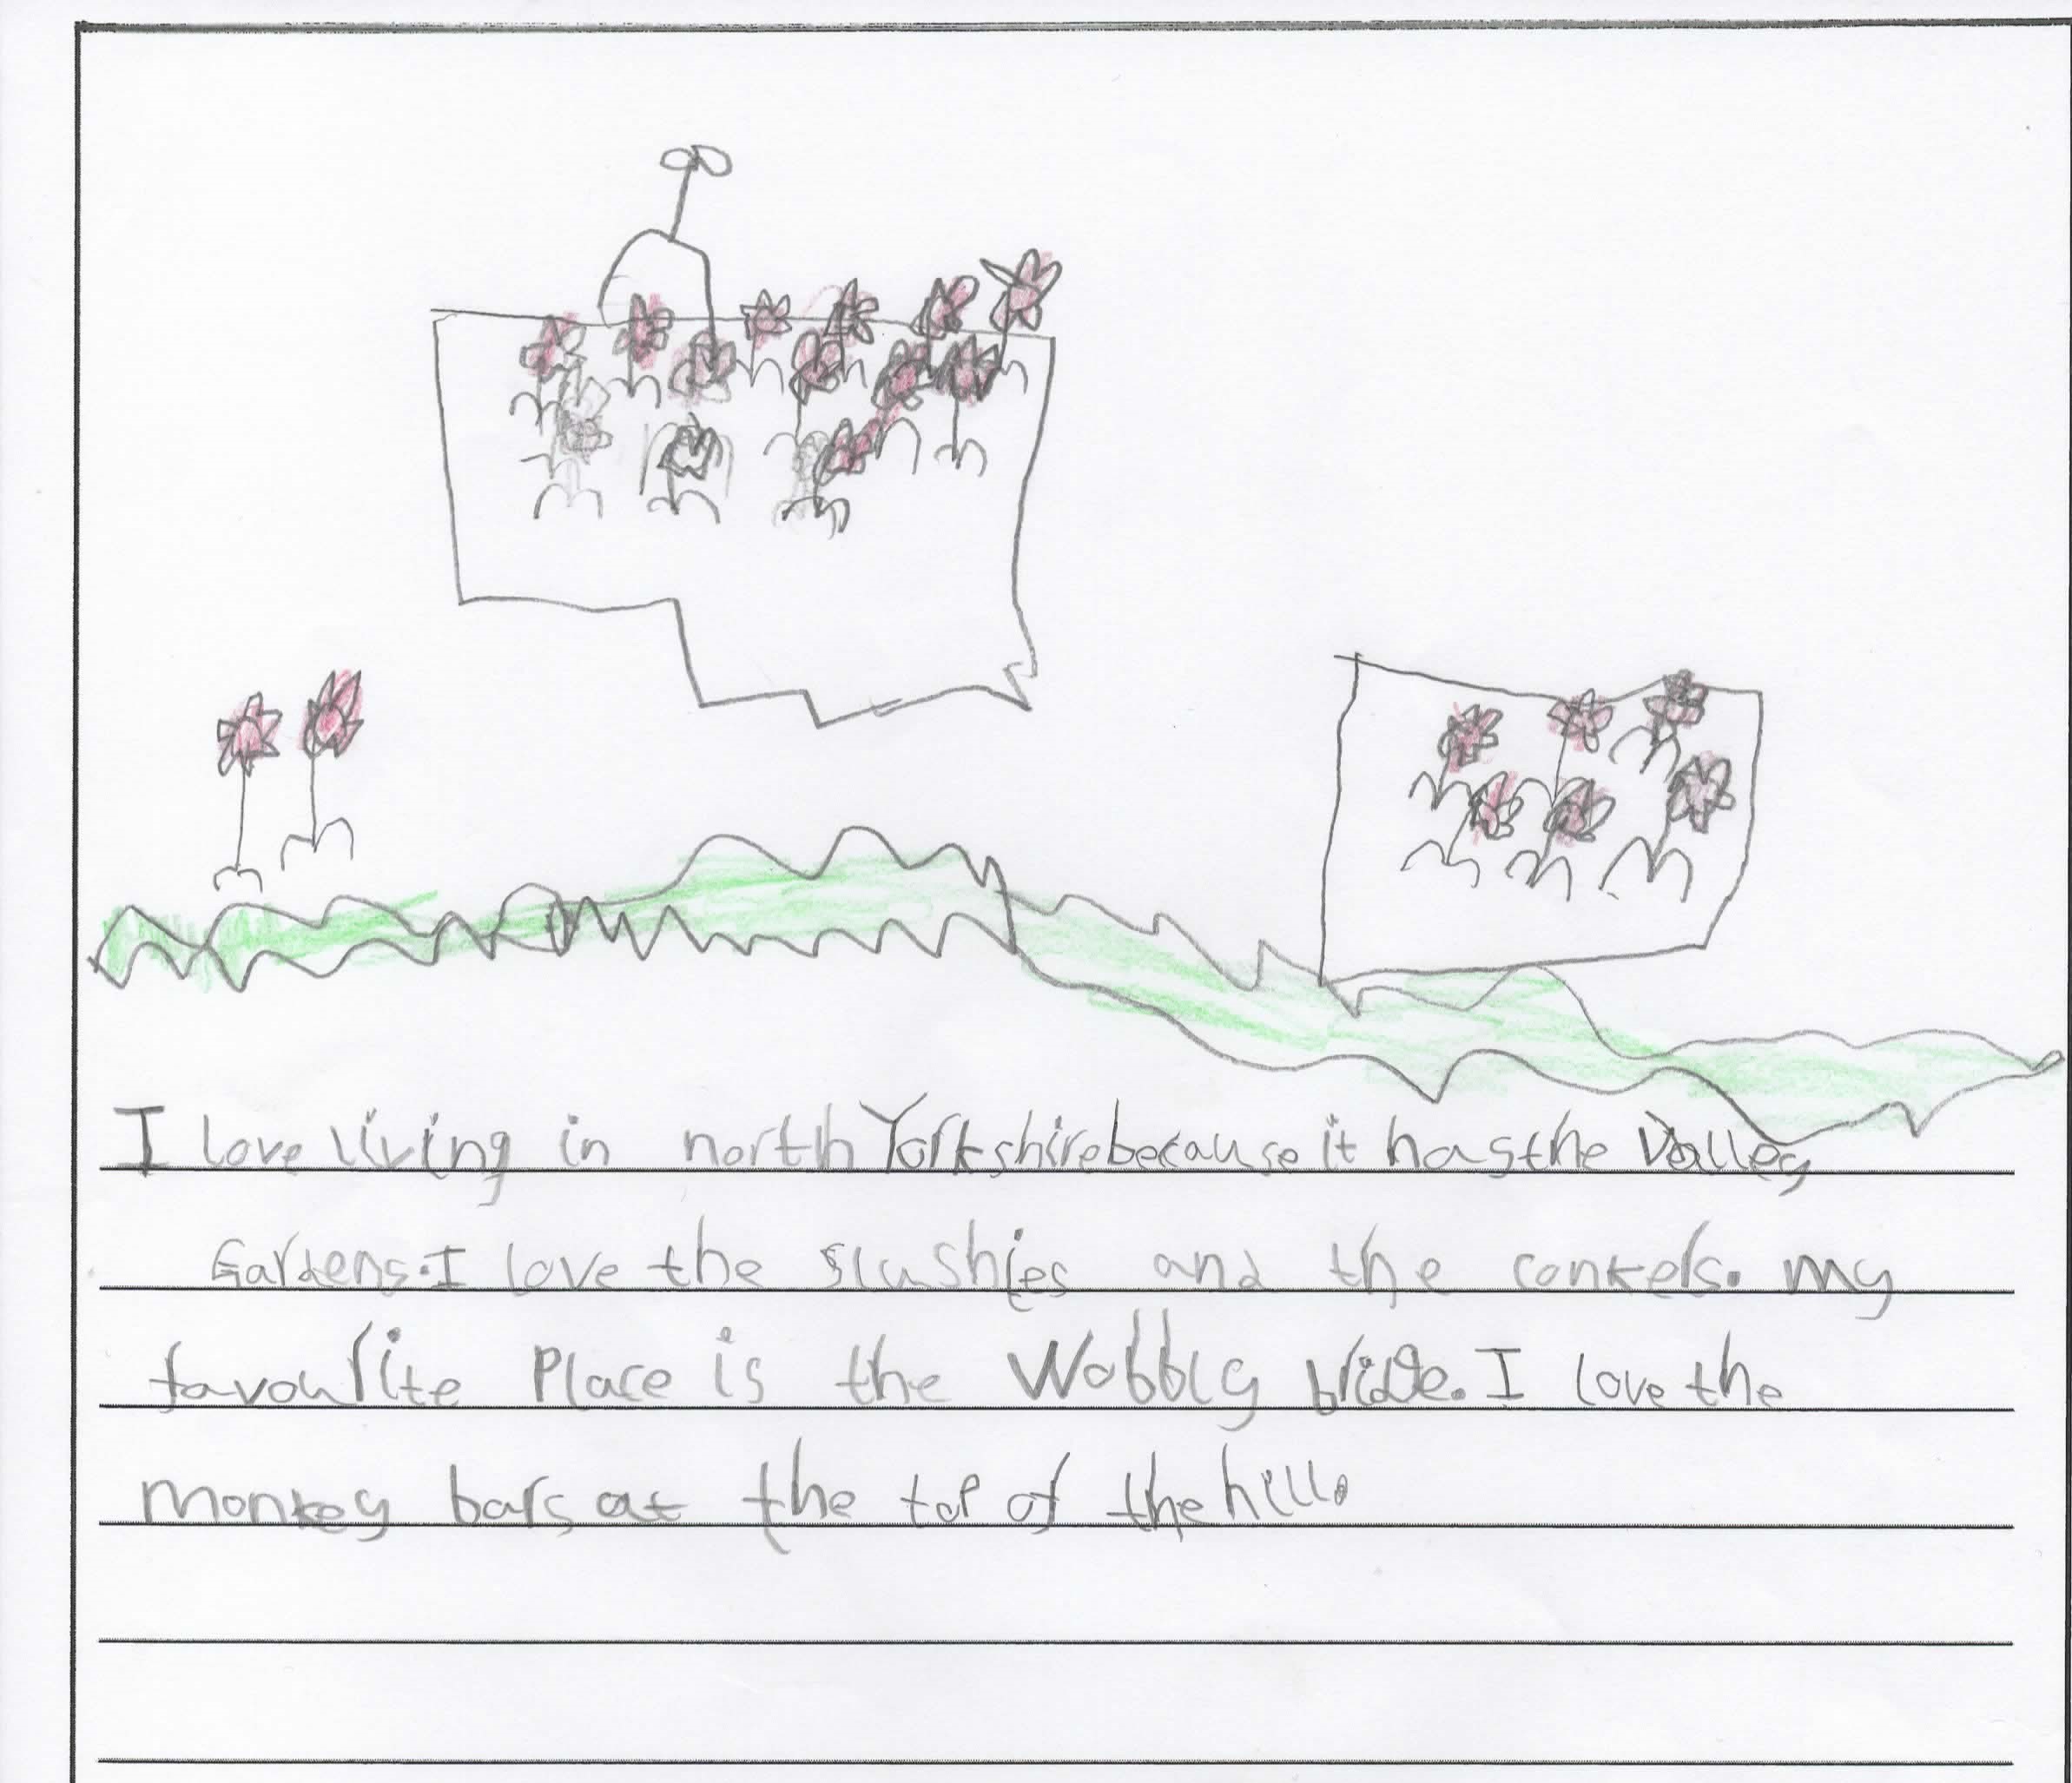 I love living in north Yorkshire because it has the Valley
Gardens. I love the slushies and the conkers. my
favourite Place is the Wobbly bridge. I love the
monkey bars at the top of the hill.